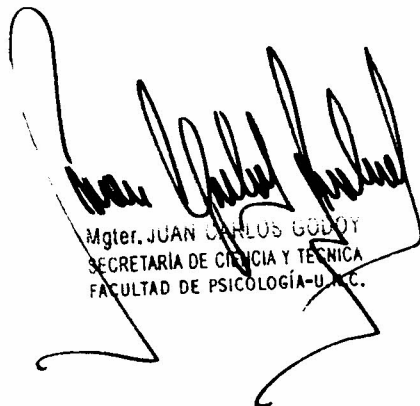 Mgter. JUAN CARLOS GODOY
SECRETARÍA DE CIENCIA Y TÉCNICA
FACULTAD DE PSICOLOGÍA-U.N.C.